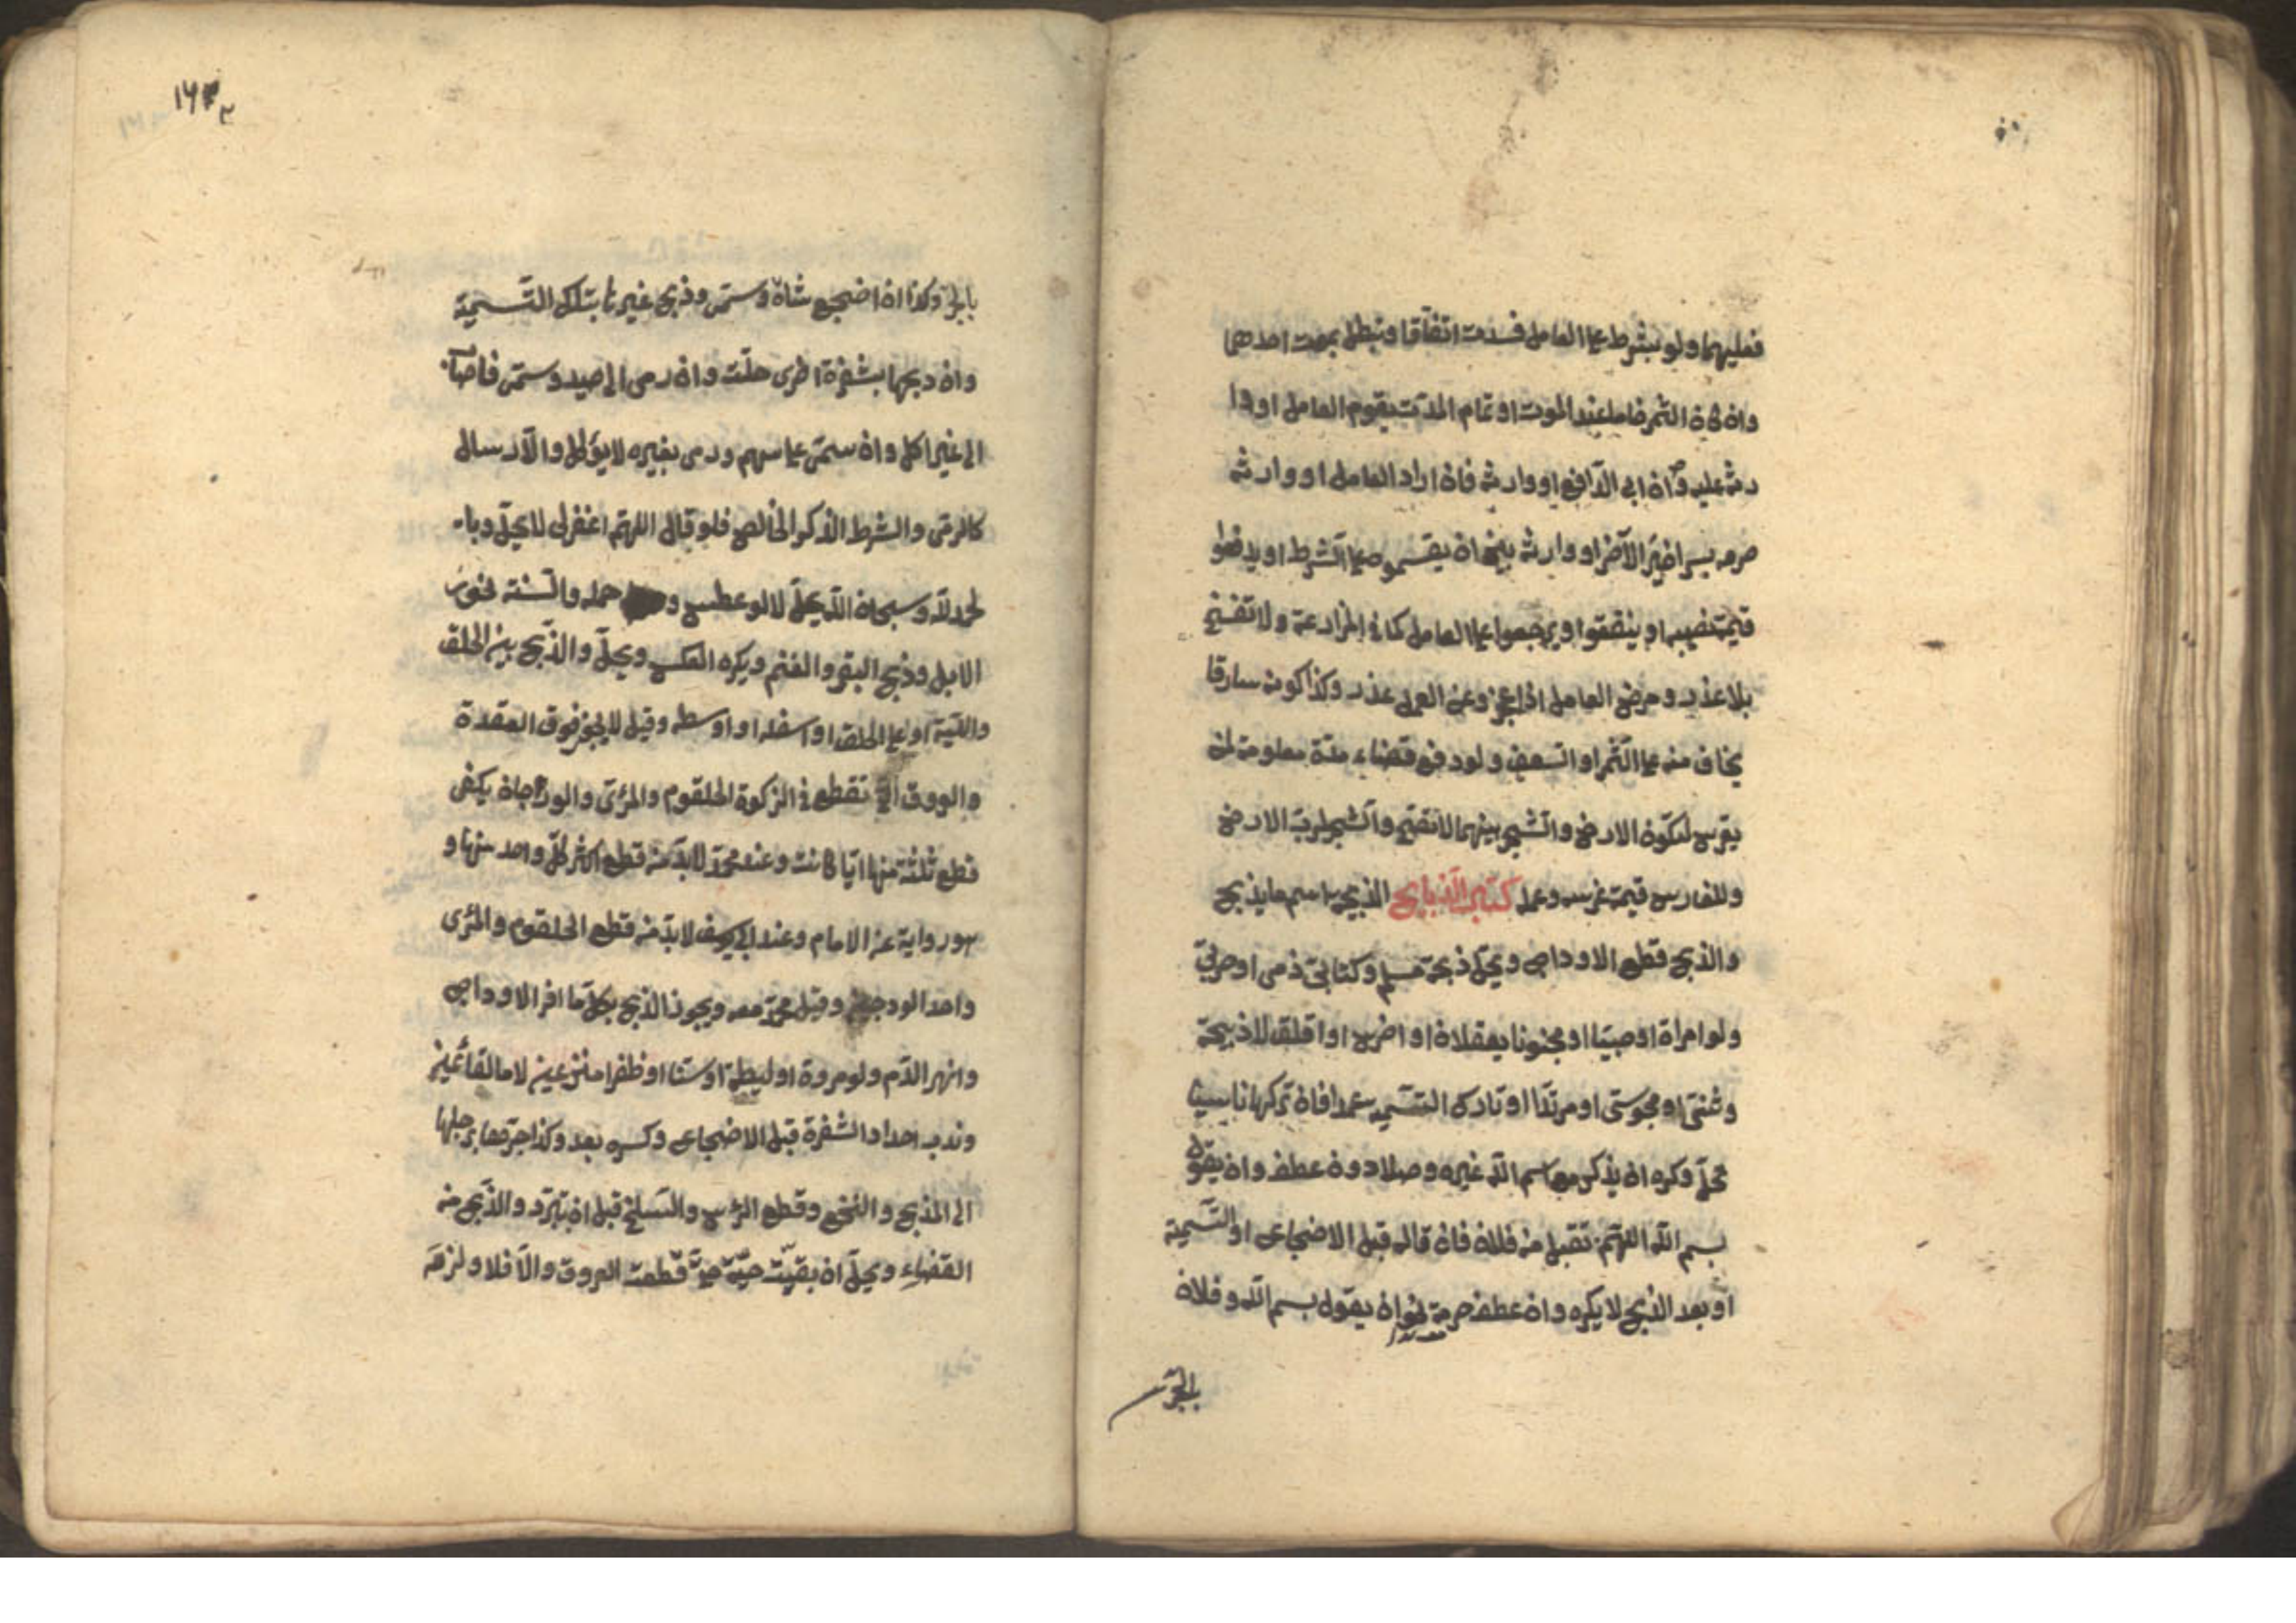 فعليهما ولو بشرط على العامل فسدت اتفاقا وتبطل بموت احدهما
وان كان الثمر خاما عند الموت او تمام المدّت يقوم العامل او وا
رثه عليه وان ابى الدّافع او وارثه فان اراد العامل او وارثه
صرمه بسرا خيّر الآخر او وارثه بين ان يقسموه على الشّرط او يدفعوا
قيمة نصيبه او ينفقوا ويرجعوا على العامل كما فى المزارعة ولا تفسخ
بلا عذر ومرض العامل اذا عجز عن العمل عذر وكذا كونه سارقا
يخاف منه على الثّمر او السّعف ولو دفع فضاء مدّة معلومة لمن
يغرس لتكون الارض والشّجر بينهما لا تصحّ والشّجر لربّ الارض
وللغارس قيمة غرسه وعمله كتاب الذّبايح الذبيحة اسم ما يذبح
والذبح قطع الاوداج ويحل ذبحة مسلم وكتابىّ ذمى او حربىّ
ولو امراة او صبيّا او مجنونا يعقلان او اخرس او اقلف لا ذبيحة
وثنىّ او مجوسىّ او مرتدّا او تارك التسميه عمدا فان تركها ناسيا
تحلّ وكره ان يذكر مع اسم اللّه غيره وصلا دون عطف وان يقول
بسم اللّه اللهمّ تقبل من فلان فان قاله قبل الاضجاع او التّسمية
او بعد الذّبح لا يكره وان عطف حرمة نحو ان يقول بسم اللّه وفلان
بالجرّ
١٦٣
بالجرّ وكذا ان اضجع شاة وسمّى وذبح غيرها بتلك التّسمية
وان ذبحها بشفرة اخرى حلّت وان رمى الى صيد وسمّى فاصاب
الى غير اكل وان سمّى على سهم ورمى بغيره لا يؤكل والارسال
كالرمى والشرط الذكر الخالص فلو قال اللهمّ اغفر لى لا يحلّ وبا
لحمد للّه وسبحان اللّه يحلّ لا لو عطس و حمد والسّنة نحر
الابل وذبح البقر والغنم ويكره العكس ويحلّ والذّبح بين الحلق
واللّبّة اعلى الحلق او اسفله او اوسطه وقيل لا يجوز فوق العقدة
والعروق الّتى تقطع فى الزكوة الحلقوم والمرئ والودجان يكفى
قطع ثلثة منها ايّا كانت وعند محمّد لا بدّ من قطع اكثر كلّ واحد منها و
هو رواية عن الامام وعند ابى يوسف لا بدّ من قطع الحلقوم والمرئ
واحد الودجين وقيل محمّد معه ويجوز الذّبح بكلّ ما افرى الاوداج
وانهر الدّم ولو مروة او ليطة او سنّا او ظفرا منزوعين لا مالقائمين
وندب احداد الشفرة قبل الاضجاع وكره بعده وكذا جرّها برجلها
الى المذبح والنّخع وقطع الرّاس والسّلخ قبل ان تبرد والذّبح من
القفاء ويحلّ ان بقيت حيّة حتّى قطعت العروق والّا فلا ولزم